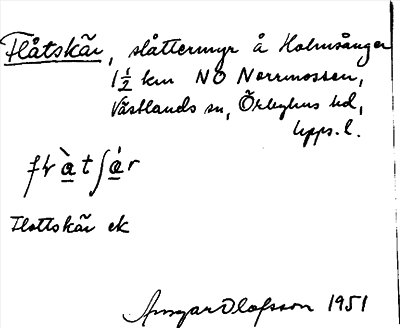 Flåtskär, slåttermyr å Holmsånger
1 1/2 km NO Norrmossen,
Västlands sn, Örbyhus hd,
Upps. l.
Flottskär ek
Ansgar Olofsson 1951